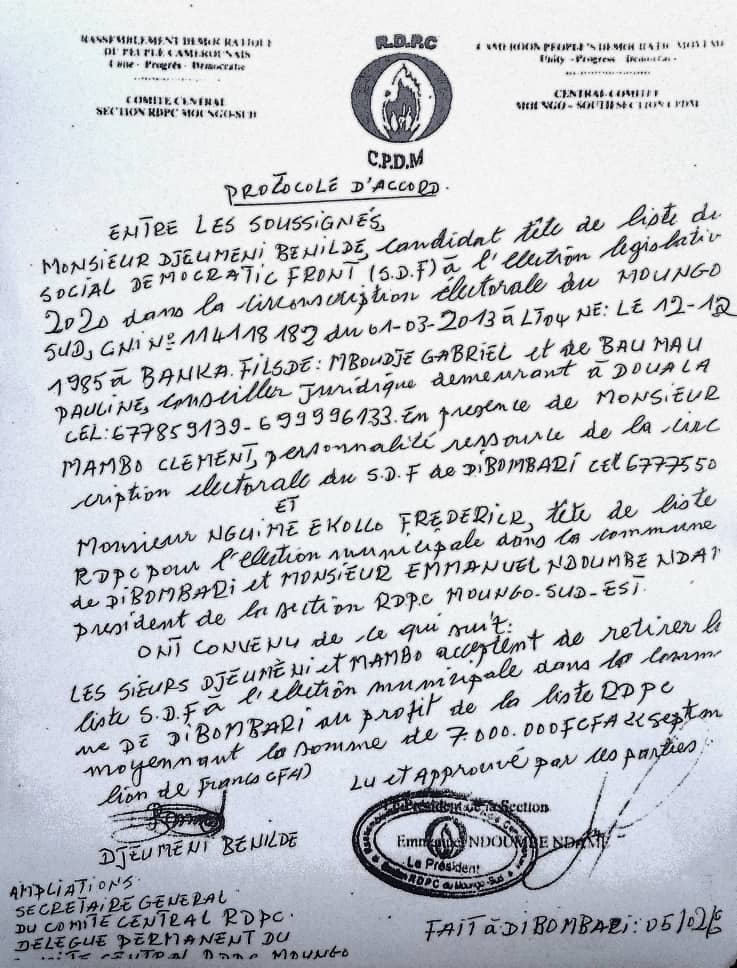 RASSEMBLEMENT DEMOCRATIQUE
DU PEUPLE CAMEROUNAIS
Unité - Progrès - Démocratie
COMITE CENTRAL
SECTION RDPC MOUNGO-SUD
R.D.P.C
C.P.D.M
CAMEROON PEOPLE'S DEMOCRATIC MOVEME
Unity - Progress Democrac-
CENTRAL COMMITE
MOUNGO - SOUTH SECTION CPDM
PROTOCOLE D'ACCORD.
ENTRE LES SOUSSIGNÉS,
MONSIEUR DJEUMENI BENILDE, candidat tête de liste du
SOCIAL DEMOCRATIC FRONT (S.D.F) à l'election legislativ
2020 dans la circonscription électorale du MOUNGO
SUD, CNI N° 114118182 du 01-03-2013 à LT04 NE: LE 12-12
1985 à BANKA. FILS DE: MBOUDJE GABRIEL et de BAUMAU
PAULINE, conseiller juridique demeurant à DOUALA
CEL: 677859139-699996133. En presence de MONSIEUR
MAMBO CLEMENT, personnalité ressource de la circ
cription électorale du S.D.F de DIBOMBARI cel 6777550
ET
Monsieur NGUIME EKOLLO FREDERICK, tête de liste
RDPC pour l'election municipale dans la commune
de DIBOMBARI et MONSIEUR EMMANUEL NDOUMBE NDA
president de la section RDPC MOUNGO-SUD-EST.
ONT CONVENU de ce qui suit:
LES SIEURS DJEUMENI et MAMBO acceptent de retirer la
liste S.D.F à l'election municipale dans la commu
ne DE DIBOMBARI au profit de la liste RDPC
moyennant la somme de 7.000.000FCFA << Sept m
llion de Francs CFA)
Lu et Approuvé par les parties
DJEUMENI BENILDE
Le Président de la Section
Emmanuel NDOUMBE NDAME
Le Président
Section RDPC du Moungo-Sud
AMPLIATIONS:
SECRETAIRE GENERAL
DU COMITE CENTRAL RDPC.
DELEGUE PERMANENT DU
COMITE CENTRAL RDPC MOUNGO
FAIT à DIBOMBARI: 05/02/